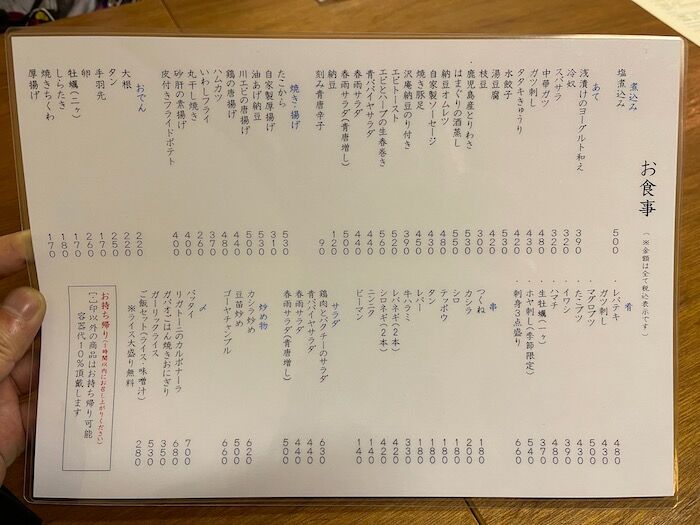 お食事
(※金額は全て税込表示です)
煮込み
塩煮込み 500
あて
浅漬けのヨーグルト和え 390
冷奴 320
スパサラ 320
中華ガツ 480
ガツ刺し 430
タタキきゅうり 420
水餃子 530
湯豆腐 420
枝豆 300
・鹿児島産とりわさ 530
はまぐりの酒蒸し 550
納豆オムレツ 480
自家製ソーセージ 430
焼き豚足 450
沢庵納豆のり付き 420
エビトースト 520
エビとハーブの生春巻き 560
青パパイヤサラダ 440
春雨サラダ 440
春雨サラダ(青唐増し) 500
納豆 120
刻み青唐辛子 90
焼き・揚げ
たこから 530
自家製厚揚げ 310
油あげ納豆 530
川エビの唐揚げ 500
鶏の唐揚げ 480
ハムカツ 400
いわしフライ 370
丸干し焼き 260
砂肝の素揚げ 400
皮付きフライドポテト 400
おでん
大根 220
タン 220
手羽先 250
卵 170
牡蠣(二ヶ) 260
しらたき 170
焼きちくわ 180
厚揚げ 170
肴
・レバテキ 480
・ガツ刺し 430
・マグロブツ 500
・たこブツ 430
・イワシ 390
・ハマチ 480
・生牡蠣(一ヶ) 370
・ホヤ刺し(季節限定) 540
・刺身3点盛り 660
串
つくね 180
カシラ 200
シロ 180
テッポウ 180
タン 180
レバー 180
牛ハラミ 330
レバネギ(2本) 420
シロネギ(2本) 420
ニンニク 140
ピーマン 140
サラダ
鶏肉とパクチーのサラダ 630
青パパイヤサラダ 440
春雨サラダ 440
春雨サラダ(青唐増し) 500
炒め物
カシラ炒め 620
豆苗炒め 500
ゴーヤチャンプル 660
〆
パッタイ 700
リガトーニのカルボナーラ 680
ガパオごはん焼きおにぎり 350
ガーリックライス 530
ご飯セット(ライス・味噌汁) 280
※ライス大盛り無料
お持ち帰り(1時間以内にお召し上がりください)
【・】印以外の商品はお持ち帰り可能
容器代10%頂戴します